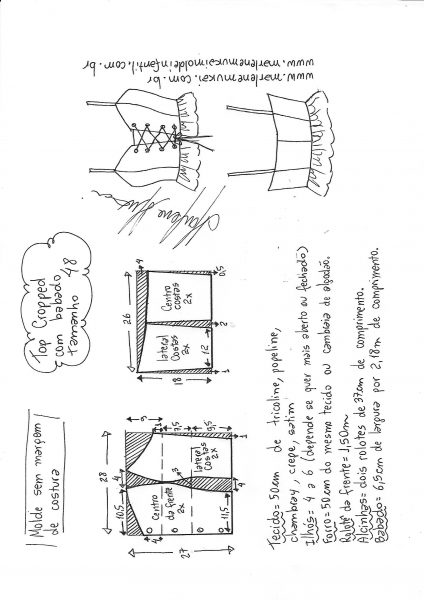 www.marlenemukai.com.br
www.marlenemukaimoldeinfantil.com.br
Top Cropped
com babado
tamanho 48
Molde sem margem
de costura
26
4
18
lateral
costas
2x
Centro
costas
2x
12
1
2
0,5
28
10,5
4
9
1
7,5
9,5
Centro
da frente
2x
3
lateral
costas
2x
4
11,5
4
1
27
Tecido= 50cm de tricoline, popeline,
chambray, crepe, cetim
Ilhós= 4 a 6 (depende se quer mais aberto ou fechado)
Forro= 50cm do mesmo tecido ou cambraia de algodão.
Rolotê da frente= 1,50m
Alcinhas= dois rolotes de 37cm de comprimento.
Babado= 6,5cm de largura por 2,18m de comprimento.